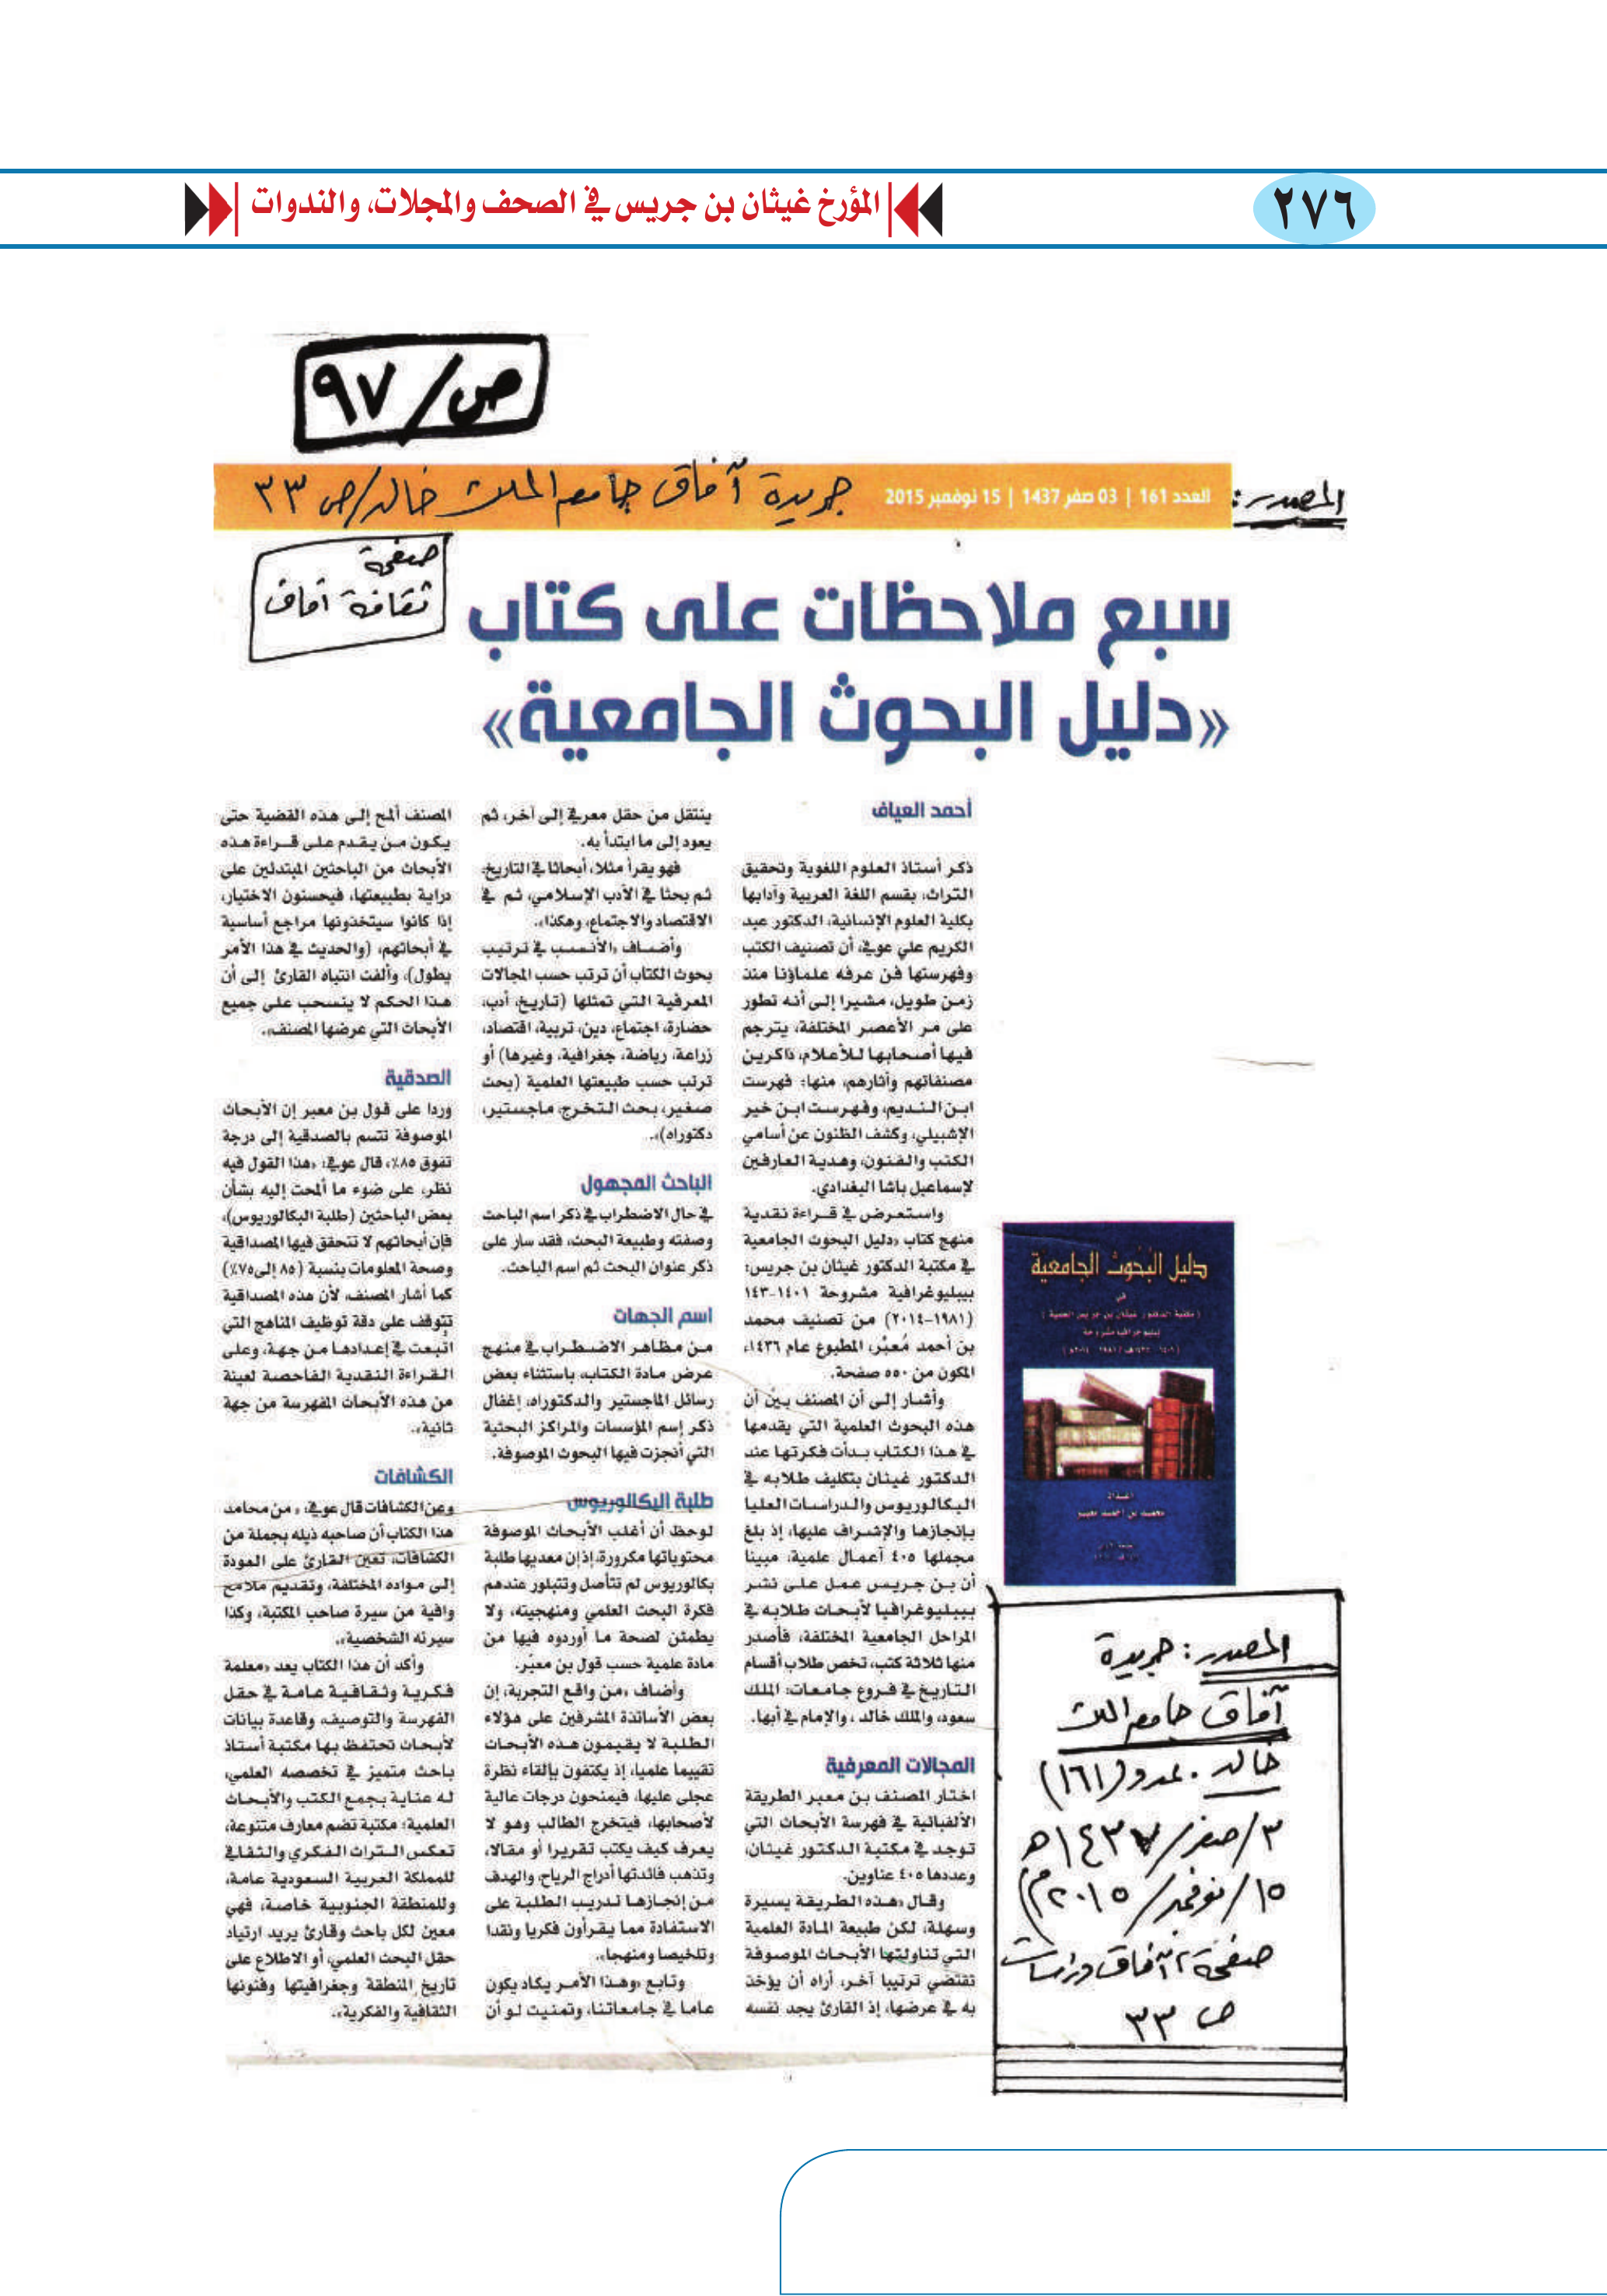 ٢٧٦
المؤرخ غيثان بن جريس في الصحف والمجلات، والندوات
ص/ ٩٧
المصدر:
العدد 161 | 03 صفر 1437 | 15 نوفمبر 2015
جريدة آفاق جامعة الملك خالد/ص ٣٣
صفحة
ثقافة آفاق
سبع ملاحظات على كتاب
«دليل البحوث الجامعية»
أحمد العياف
ذكر أستاذ العلوم اللغوية وتحقيق
التراث، بقسم اللغة العربية وآدابها
بكلية العلوم الإنسانية، الدكتور عبد
الكريم علي عوفي، أن تصنيف الكتب
وفهرستها فن عرفه علماؤنا منذ
زمن طويل، مشيرا إلى أنه تطور
على مر الأعصر المختلفة، يترجم
فيها أصحابها للأعلام، ذاكرين
مصنفاتهم وآثارهم، منها: فهرست
ابن النديم، وفهرست ابن خير
الإشبيلي، وكشف الظنون عن أسامي
الكتب والفنون، وهدية العارفين
لإسماعيل باشا البغدادي.
واستعرض في قراءة نقدية
منهج كتاب «دليل البحوث الجامعية
في مكتبة الدكتور غيثان بن جريس:
بيبليوغرافية مشروحة ١٤٠١-١٤٣
(١٩٨١-٢٠١٤) من تصنيف محمد
بن أحمد مُعبْر، المطبوع عام ١٤٣٦،
المكون من ٥٥٠ صفحة.
وأشار إلى أن المصنف بيّن أن
هذه البحوث العلمية التي يقدمها
في هذا الكتاب بدأت فكرتها عند
الدكتور غيثان بتكليف طلابه في
البكالوريوس والدراسات العليا
بإنجازها والإشراف عليها، إذ بلغ
مجملها ٤٠٥ أعمال علمية، مبينا
أن بن جريس عمل على نشر
بيبليوغرافيا لأبحاث طلابه في
المراحل الجامعية المختلفة، فأصدر
منها ثلاثة كتب، تخص طلاب أقسام
التاريخ في فروع جامعات: الملك
سعود، والملك خالد، والإمام في أبها.
المجالات المعرفية
اختار المصنف بن معبر الطريقة
الألفبائية في فهرسة الأبحاث التي
توجد في مكتبة الدكتور غيثان،
وعددها ٤٠٥ عناوين.
وقال «هذه الطريقة يسيرة
وسهلة، لكن طبيعة المادة العلمية
التي تناولتها الأبحاث الموصوفة
تقتضي ترتيبا آخر، أراه أن يؤخذ
به في عرضها، إذ القارئ يجد نفسه
ينتقل من حقل معرفي إلى آخر، ثم
يعود إلى ما ابتدأ به.
فهو يقرأ مثلا، أبحاثا في التاريخ،
ثم بحثا في الأدب الإسلامي، ثم في
الاقتصاد والاجتماع، وهكذا».
وأضاف «الأنسب في ترتيب
بحوث الكتاب أن ترتب حسب المجالات
المعرفية التي تمثلها (تاريخ، أدب،
حضارة، اجتماع، دين، تربية، اقتصاد،
زراعة، رياضة، جغرافية، وغيرها) أو
ترتب حسب طبيعتها العلمية (بحث
صغير، بحث التخرج، ماجستير،
دكتوراه)».
الباحث المجهول
في حال الاضطراب في ذكر اسم الباحث
وصفته وطبيعة البحث، فقد سار على
ذكر عنوان البحث ثم اسم الباحث.
اسم الجهات
من مظاهر الاضطراب في منهج
عرض مادة الكتاب، باستثناء بعض
رسائل الماجستير والدكتوراه، إغفال
ذكر إسم المؤسسات والمراكز البحثية
التي أنجزت فيها البحوث الموصوفة.
طلبة البكالوريوس
لوحظ أن أغلب الأبحاث الموصوفة
محتوياتها مكرورة، إذ إن معديها طلبة
بكالوريوس لم تتأصل وتتبلور عندهم
فكرة البحث العلمي ومنهجيته، ولا
يطمئن لصحة ما أوردوه فيها من
مادة علمية حسب قول بن معبْر.
وأضاف «من واقع التجربة، إن
بعض الأساتذة المشرفين على هؤلاء
الطلبة لا يقيمون هذه الأبحاث
تقييما علميا، إذ يكتفون بإلقاء نظرة
عجلى عليها، فيمنحون درجات عالية
لأصحابها، فيتخرج الطالب وهو لا
يعرف كيف يكتب تقريرا أو مقالا،
وتذهب فائدتها أدراج الرياح، والهدف
من إنجازها تدريب الطلبة على
الاستفادة مما يقرأون فكريا ونقدا
وتلخيصا ومنهجا».
وتابع «وهذا الأمر يكاد يكون
عاما في جامعاتنا، وتمنيت لو أن
المصنف ألمح إلى هذه القضية حتى
يكون من يقدم على قراءة هذه
الأبحاث من الباحثين المبتدئين على
دراية بطبيعتها، فيحسنون الاختيار،
إذا كانوا سيتخذونها مراجع أساسية
في أبحاثهم، (والحديث في هذا الأمر
يطول)، وألفت انتباه القارئ إلى أن
هذا الحكم لا ينسحب على جميع
الأبحاث التي عرضها المصنف».
الصدقية
وردا على قول بن معبر إن الأبحاث
الموصوفة تتسم بالصدقية إلى درجة
تفوق ٨٥٪، قال عوفي: «هذا القول فيه
نظر، على ضوء ما ألمحت إليه بشأن
بعض الباحثين (طلبة البكالوريوس)،
فإن أبحاثهم لا تتحقق فيها المصداقية
وصحة المعلومات بنسبة (٨٥ إلى ٧٥٪)
كما أشار المصنف، لأن هذه المصداقية
تتوقف على دقة توظيف المناهج التي
اتُبعت في إعدادها من جهة، وعلى
القراءة النقدية الفاحصة لعينة
من هذه الأبحاث المفهرسة من جهة
ثانية».
الكشافات
وعن الكشافات قال عوفي: «من محامد
هذا الكتاب أن صاحبه ذيله بجملة من
الكشافات، تعين القارئ على العودة
إلى مواده المختلفة، وتقديم ملامح
وافية من سيرة صاحب المكتبة، وكذا
سيرته الشخصية».
وأكد أن هذا الكتاب يعد «معلمة
فكرية وثقافية عامة في حقل
الفهرسة والتوصيف، وقاعدة بيانات
لأبحاث تحتفظ بها مكتبة أستاذ
باحث متميز في تخصصه العلمي،
له عناية بجمع الكتب والأبحاث
العلمية؛ مكتبة تضم معارف متنوعة،
تعكس التراث الفكري والثقافي
للمملكة العربية السعودية عامة،
وللمنطقة الجنوبية خاصة، فهي
معين لكل باحث وقارئ يريد ارتياد
حقل البحث العلمي، أو الاطلاع على
تاريخ المنطقة وجغرافيتها وفنونها
الثقافية والفكرية».
دليل البُحوث الجامعية
في
المصدر: جريدة
آفاق جامعة الملك
خالد. عدد (١٦١)
٣/صفر/١٤٣٧هـ
١٥/نوفمبر/٢٠١٥م)
صفحة آفاق ودراسات
ص ٣٣